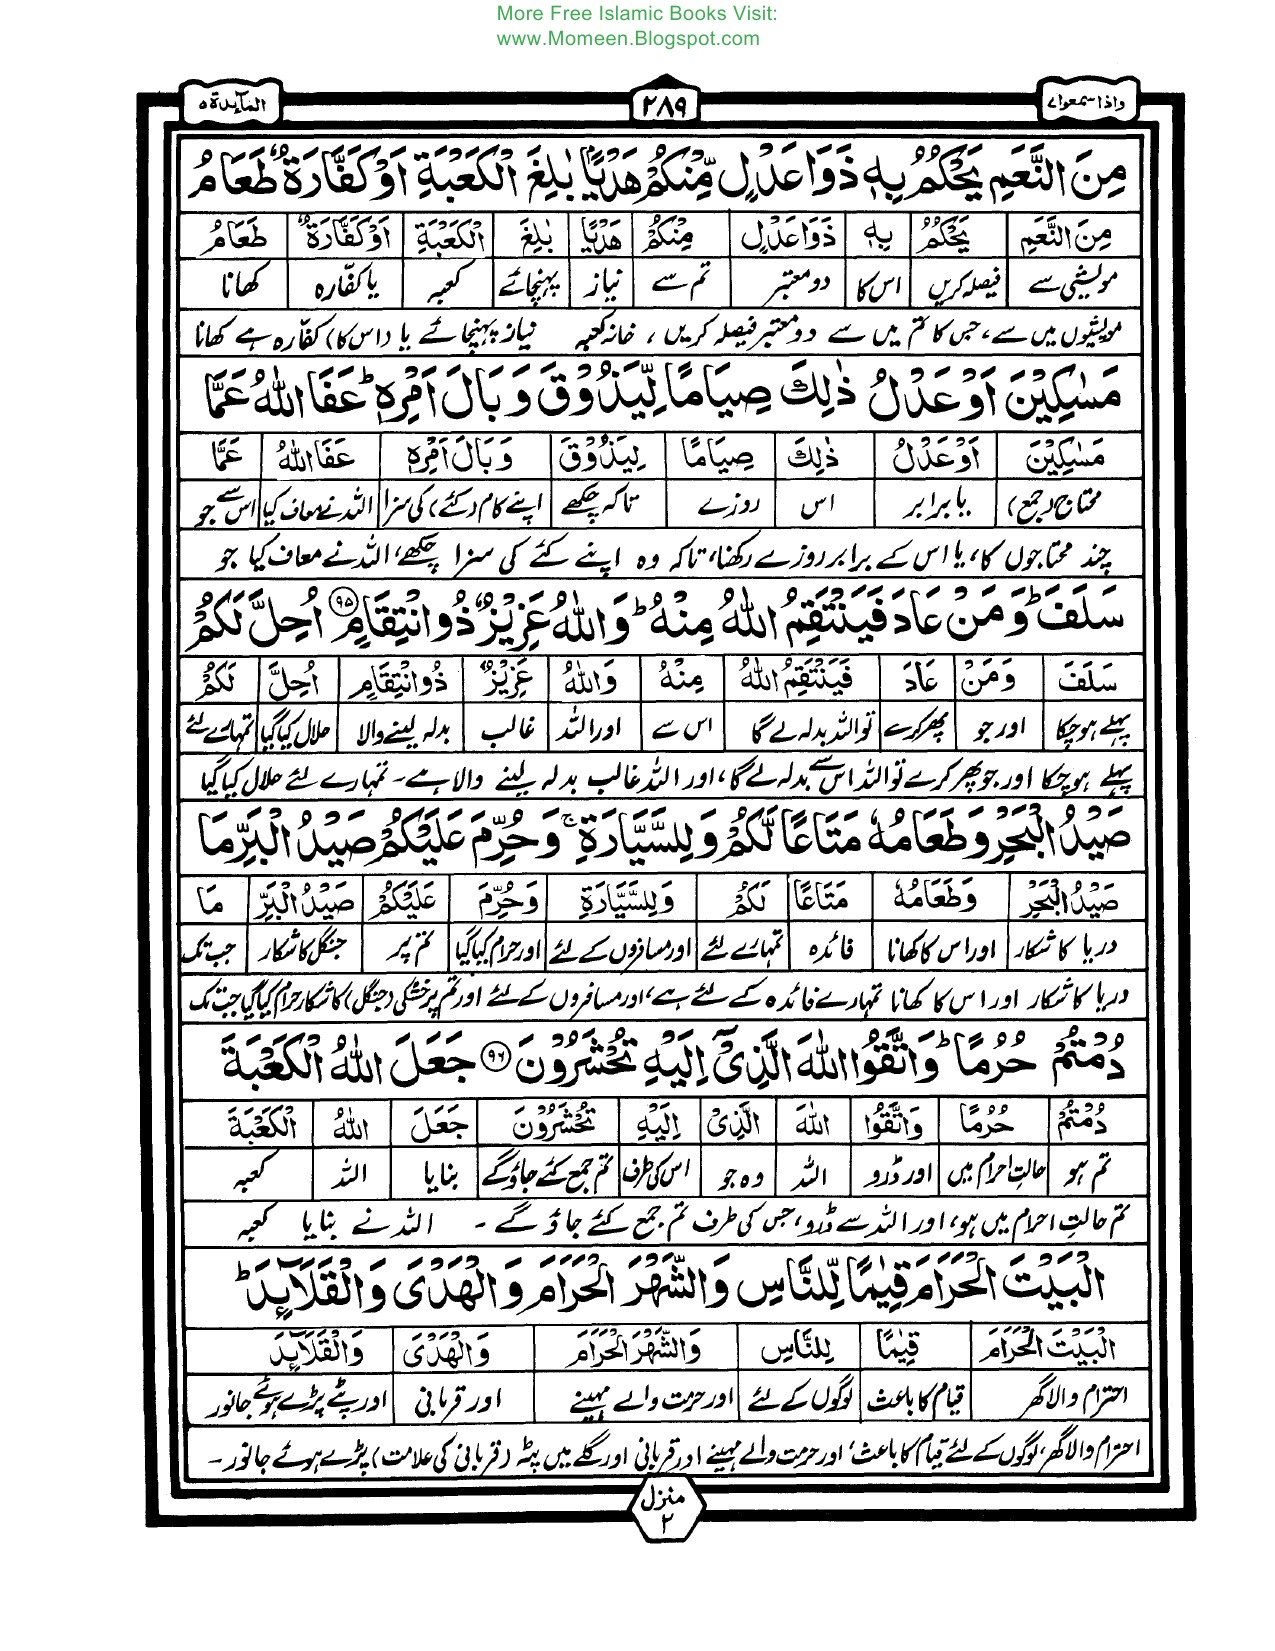 More Free Islamic Books Visit:
www.Momeen.Blogspot.com
واذا سمعوا ۷
۲۸۹
المآئدة ۵
مِنَ النَّعَمِ يَحْكُمُ بِهٖ ذَوَا عَدْلٍ مِّنْكُمْ هَدْيًۢا بٰلِغَ الْكَعْبَةِ اَوْ كَفَّارَةٌ طَعَامُ
مِنَ النَّعَمِ يَحْكُمُ بِهٖ ذَوَا عَدْلٍ مِنْكُمْ هَدْيًا بٰلِغَ الْكَعْبَةِ اَوْ كَفَّارَةٌ طَعَامُ
مویشی سے فیصلہ کریں اس کا دو معتبر تم سے نیاز پہنچائے کعبہ یا کفّارہ کھانا
مویشیوں میں سے، جس کا تم میں سے دو معتبر فیصلہ کریں، خانہ کعبہ نیاز پہنچائے یا (اس کا) کفّارہ ہے کھانا
مَسٰكِيْنَ اَوْ عَدْلُ ذٰلِكَ صِيَامًا لِّيَذُوْقَ وَبَالَ اَمْرِهٖ ؕ عَفَا اللّٰهُ عَمَّا
مَسٰكِيْنَ اَوْ عَدْلُ ذٰلِكَ صِيَامًا لِيَذُوْقَ وَبَالَ اَمْرِهٖ عَفَا اللّٰهُ عَمَّا
محتاج (جمع) یا برابر اس روزے تاکہ چکھے اپنے کام (کئے) کی سزا اللہ نے معاف کیا اس سے جو
چند محتاجوں کا، یا اس کے برابر روزے رکھنا، تاکہ وہ اپنے کئے کی سزا چکھے، اللہ نے معاف کیا جو
سَلَفَ ؕ وَمَنْ عَادَ فَيَنْتَقِمُ اللّٰهُ مِنْهُ ؕ وَاللّٰهُ عَزِيْزٌ ذُو انْتِقَامٍ ۹۵ اُحِلَّ لَكُمْ
سَلَفَ وَمَنْ عَادَ فَيَنْتَقِمُ اللّٰهُ مِنْهُ وَاللّٰهُ عَزِيْزٌ ذُو انْتِقَامٍ اُحِلَّ لَكُمْ
پہلے ہو چکا اور جو پھر کرے تو اللہ بدلہ لے گا اس سے اور اللہ غالب بدلہ لینے والا حلال کیا گیا تمہارے لئے
پہلے ہو چکا اور جو پھر کرے تو اللہ اس سے بدلہ لے گا، اور اللہ غالب بدلہ لینے والا ہے۔ تمہارے لئے حلال کیا گیا
صَيْدُ الْبَحْرِ وَطَعَامُهٗ مَتَاعًا لَّكُمْ وَلِلسَّيَّارَةِ ۚ وَحُرِّمَ عَلَيْكُمْ صَيْدُ الْبَرِّ مَا
صَيْدُ الْبَحْرِ وَطَعَامُهٗ مَتَاعًا لَكُمْ وَلِلسَّيَّارَةِ وَحُرِّمَ عَلَيْكُمْ صَيْدُ الْبَرِّ مَا
دریا کا شکار اور اس کا کھانا فائدہ تمہارے لئے اور مسافروں کے لئے اور حرام کیا گیا تم پر جنگل کا شکار جب تک
دریا کا شکار اور اس کا کھانا تمہارے فائدہ کے لئے ہے، اور مسافروں کے لئے اور تم پر خشکی (جنگل) کا شکار حرام کیا گیا جب تک
دُمْتُمْ حُرُمًا ؕ وَاتَّقُوا اللّٰهَ الَّذِيْٓ اِلَيْهِ تُحْشَرُوْنَ ۹۶ جَعَلَ اللّٰهُ الْكَعْبَةَ
دُمْتُمْ حُرُمًا وَاتَّقُوا اللّٰهَ الَّذِيْ اِلَيْهِ تُحْشَرُوْنَ جَعَلَ اللّٰهُ الْكَعْبَةَ
تم ہو حالتِ احرام میں اور ڈرو اللہ وہ جو اس کی طرف تم جمع کئے جاؤ گے بنایا اللہ کعبہ
تم حالتِ احرام میں ہو، اور اللہ سے ڈرو، جس کی طرف تم جمع کئے جاؤ گے ۔ اللہ نے بنایا کعبہ
الْبَيْتَ الْحَرَامَ قِيٰمًا لِّلنَّاسِ وَالشَّهْرَ الْحَرَامَ وَالْهَدْيَ وَالْقَلَآئِدَ ؕ
الْبَيْتَ الْحَرَامَ قِيٰمًا لِلنَّاسِ وَالشَّهْرَ الْحَرَامَ وَالْهَدْيَ وَالْقَلَآئِدَ
احترام والا گھر قیام کا باعث لوگوں کے لئے اور حرمت والے مہینے اور قربانی اور پٹے پڑے ہوئے جانور
احترام والا گھر، لوگوں کے لئے قیام کا باعث، اور حرمت والے مہینے اور قربانی اور گلے میں پٹہ (قربانی کی علامت) پڑے ہوئے جانور ۔
منزل
۲